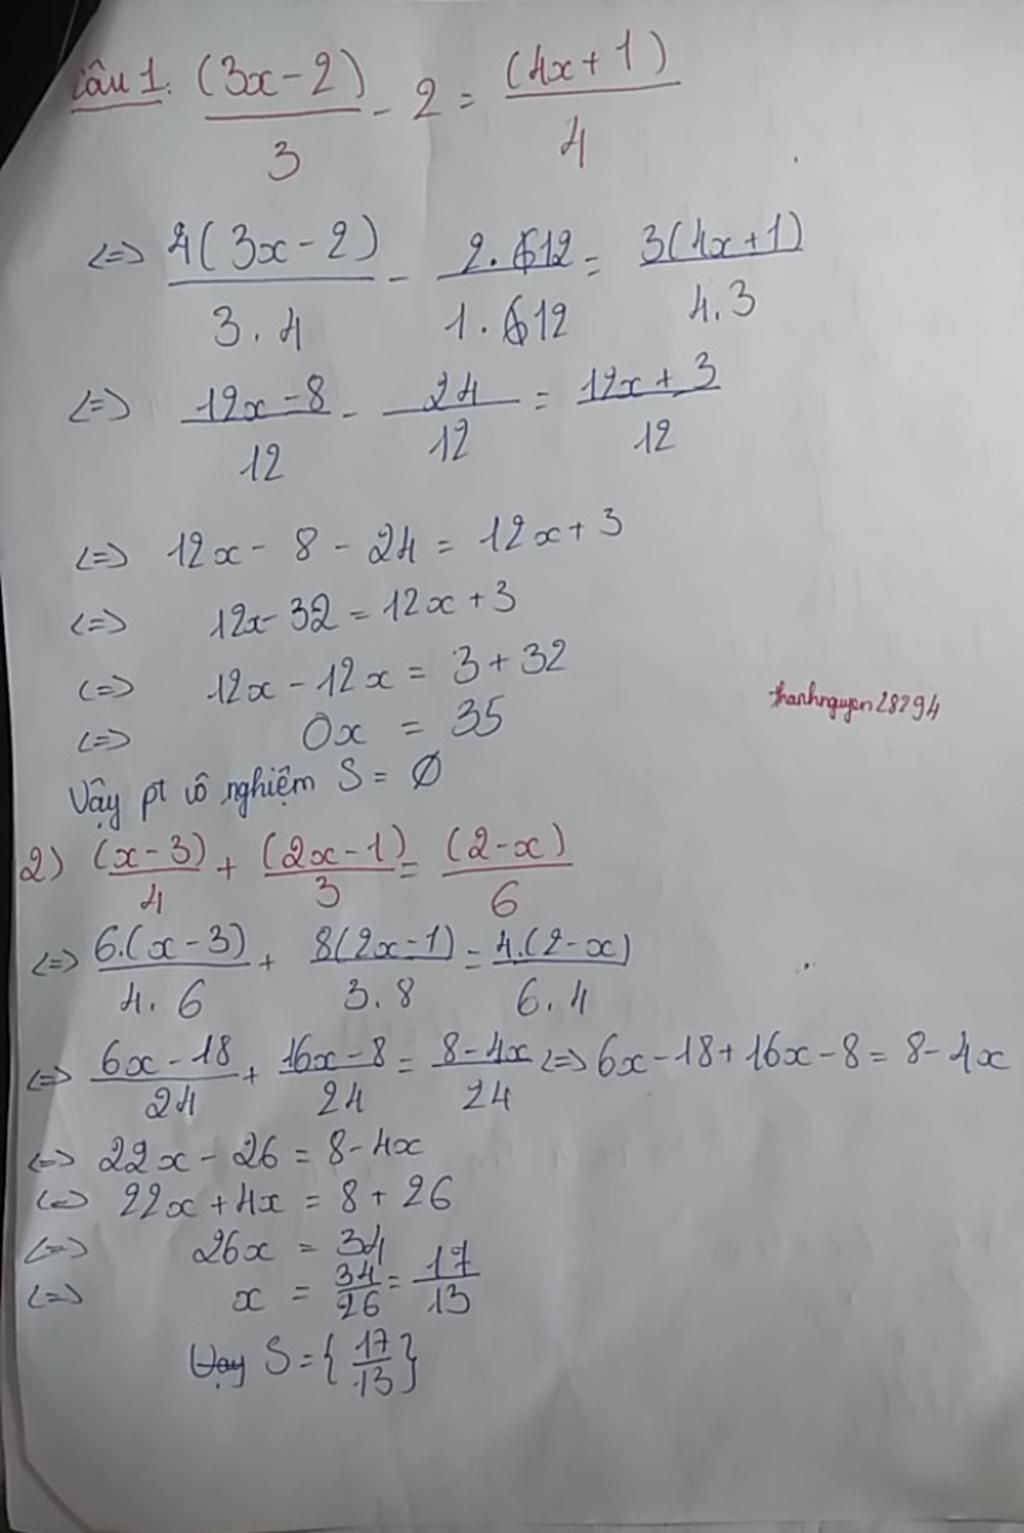 Câu 1: (3x-2)/3 - 2 = (4x+1)/4
<=> 4(3x-2)/3.4 - 2.12/1.12 = 3(4x+1)/4.3
<=> 12x-8/12 - 24/12 = 12x+3/12
<=> 12x - 8 - 24 = 12x + 3
<=> 12x - 32 = 12x + 3
<=> 12x - 12x = 3 + 32
thanhnguyen28294
<=> 0x = 35
Vậy pt vô nghiệm S = Ø
2) (x-3)/4 + (2x-1)/3 = (2-x)/6
<=> 6.(x-3)/4.6 + 8(2x-1)/3.8 = 4.(2-x)/6.4
<=> 6x-18/24 + 16x-8/24 = 8-4x/24 <=> 6x-18+16x-8 = 8-4x
<=> 22x - 26 = 8-4x
<=> 22x + 4x = 8 + 26
<=> 26x = 34
<=> x = 34/26 = 17/13
Vậy S = {17/13}